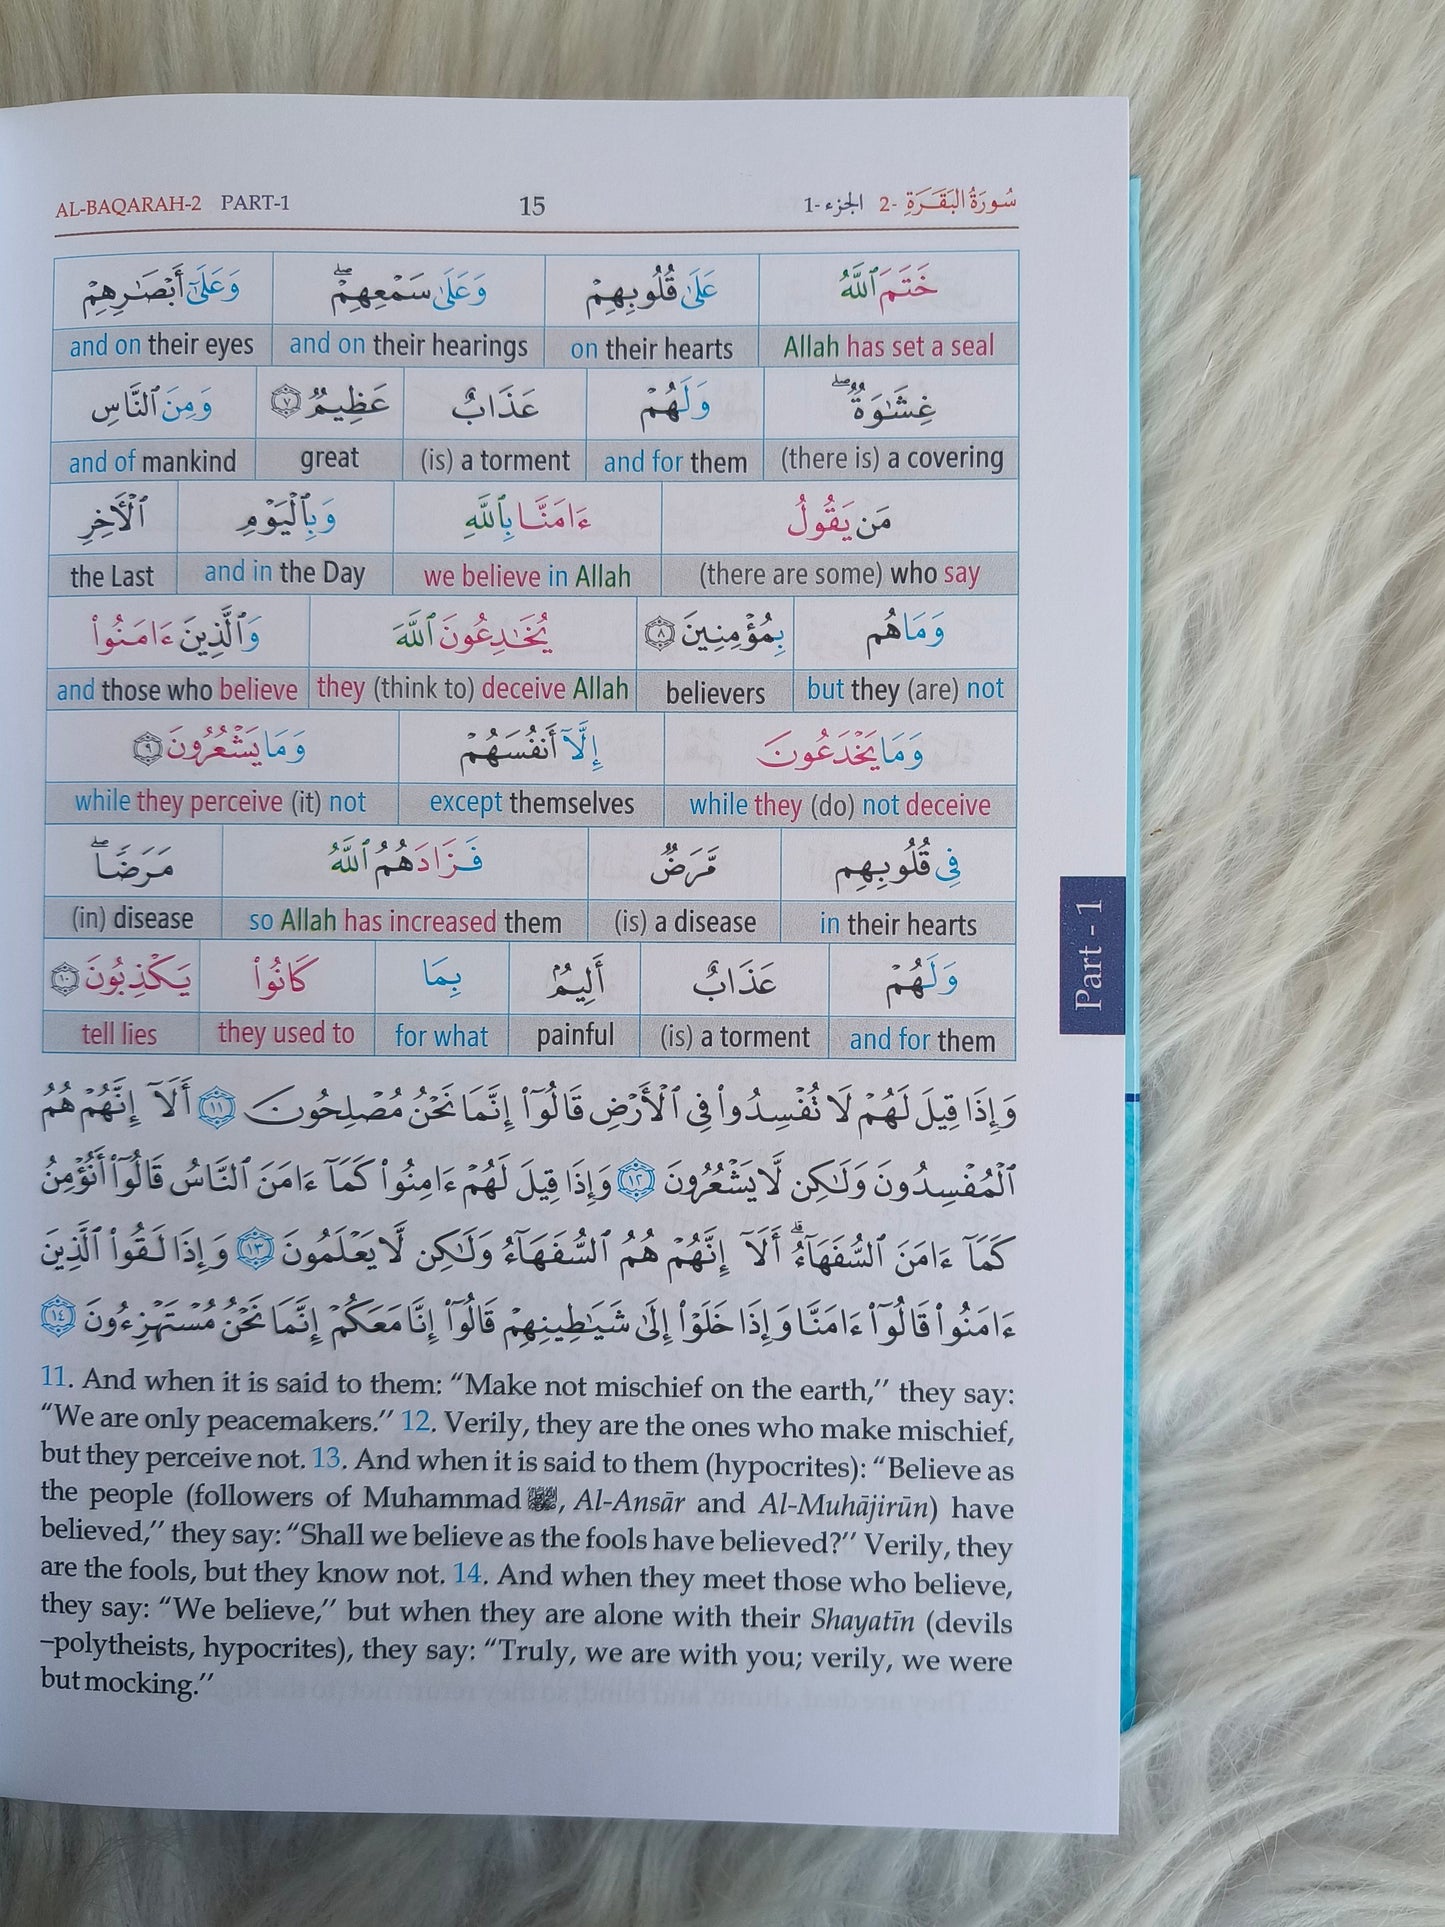 AL-BAQARAH-2 PART-1 15 الجزء -1 سُورَةُ البَقَرَةِ -2
خَتَمَ ٱللَّهُ عَلَىٰ قُلُوبِهِمْ وَعَلَىٰ سَمْعِهِمْ ۖ وَعَلَىٰٓ أَبْصَـٰرِهِمْ
and on their eyes and on their hearings on their hearts Allah has set a seal
غِشَـٰوَةٌ ۖ وَلَهُمْ عَذَابٌ عَظِيمٌ ٧ وَمِنَ ٱلنَّاسِ
and of mankind great (is) a torment and for them (there is) a covering
مَن يَقُولُ ءَامَنَّا بِٱللَّهِ وَبِٱلْيَوْمِ ٱلْـَٔاخِرِ
the Last and in the Day we believe in Allah (there are some) who say
وَمَا هُم بِمُؤْمِنِينَ ٨ يُخَـٰدِعُونَ ٱللَّهَ وَٱلَّذِينَ ءَامَنُوا۟
and those who believe they (think to) deceive Allah believers but they (are) not
وَمَا يَخْدَعُونَ إِلَّآ أَنفُسَهُمْ وَمَا يَشْعُرُونَ ٩
while they perceive (it) not except themselves while they (do) not deceive
فِى قُلُوبِهِم مَّرَضٌ فَزَادَهُمُ ٱللَّهُ مَرَضًا ۖ
(in) disease so Allah has increased them (is) a disease in their hearts
وَلَهُمْ عَذَابٌ أَلِيمٌۢ بِمَا كَانُوا۟ يَكْذِبُونَ ١٠
tell lies they used to for what painful (is) a torment and for them
Part - 1
وَإِذَا قِيلَ لَهُمْ لَا تُفْسِدُوا۟ فِى ٱلْأَرْضِ قَالُوٓا۟ إِنَّمَا نَحْنُ مُصْلِحُونَ ١١ أَلَآ إِنَّهُمْ هُمُ
ٱلْمُفْسِدُونَ وَلَـٰكِن لَّا يَشْعُرُونَ ١٢ وَإِذَا قِيلَ لَهُمْ ءَامِنُوا۟ كَمَآ ءَامَنَ ٱلنَّاسُ قَالُوٓا۟ أَنُؤْمِنُ
كَمَآ ءَامَنَ ٱلسُّفَهَآءُ ۗ أَلَآ إِنَّهُمْ هُمُ ٱلسُّفَهَآءُ وَلَـٰكِن لَّا يَعْلَمُونَ ١٣ وَإِذَا لَقُوا۟ ٱلَّذِينَ
ءَامَنُوا۟ قَالُوٓا۟ ءَامَنَّا وَإِذَا خَلَوْا۟ إِلَىٰ شَيَـٰطِينِهِمْ قَالُوٓا۟ إِنَّا مَعَكُمْ إِنَّمَا نَحْنُ مُسْتَهْزِءُونَ ١٤
11. And when it is said to them: “Make not mischief on the earth,” they say:
“We are only peacemakers.” 12. Verily, they are the ones who make mischief,
but they perceive not. 13. And when it is said to them (hypocrites): “Believe as
the people (followers of Muhammad ﷺ, Al-Ansār and Al-Muhājirūn) have
believed,” they say: “Shall we believe as the fools have believed?” Verily, they
are the fools, but they know not. 14. And when they meet those who believe,
they say: “We believe,” but when they are alone with their Shayatīn (devils
–polytheists, hypocrites), they say: “Truly, we are with you; verily, we were
but mocking.”